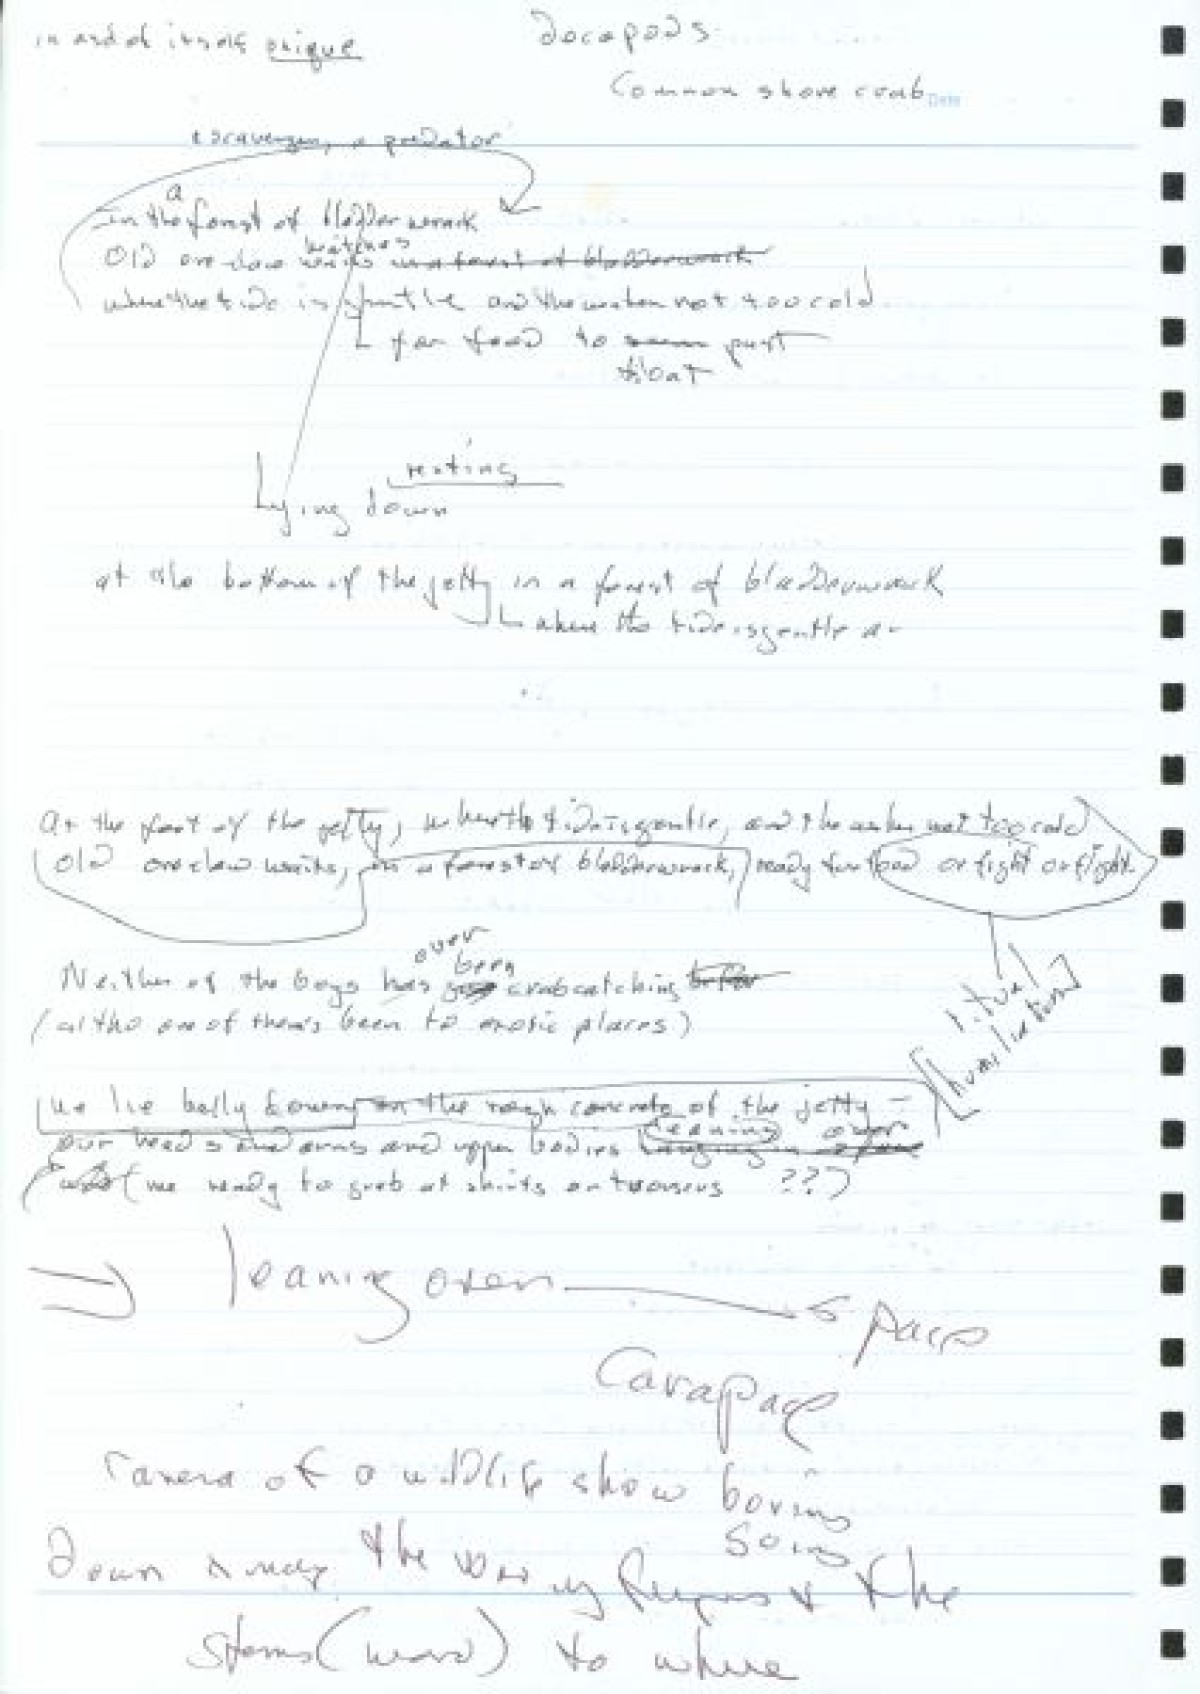 in and of itself unique
Decapods
Common shore crab
Date
a scavenger, a predator
a
in the forest of bladderwrack
watches
Old one-claw waits in a forest of bladderwrack
where the tide is gentle and the water not too cold
for food to seem past
float
resting
Lying down
at the bottom of the jetty in a forest of bladderwrack
where the tide is gentle a-
At the foot of the jetty, where the tide is gentle, and the water not too cold
Old one-claw waits, in a forest of bladderwrack, ready for food or fight or flight.
over
been
Neither of the boys has crabcatching before
(altho one of them's been to exotic places)
ritual
[humiliation]
We lie belly down on the rough concrete of the jetty -
leaning over
our heads and arms and upper bodies hanging in
(me ready to grab at shirts or trousers ???)
leaning over
space
Carapace
camera of a wildlife show boring
going
Down the & the
stems (word) to where